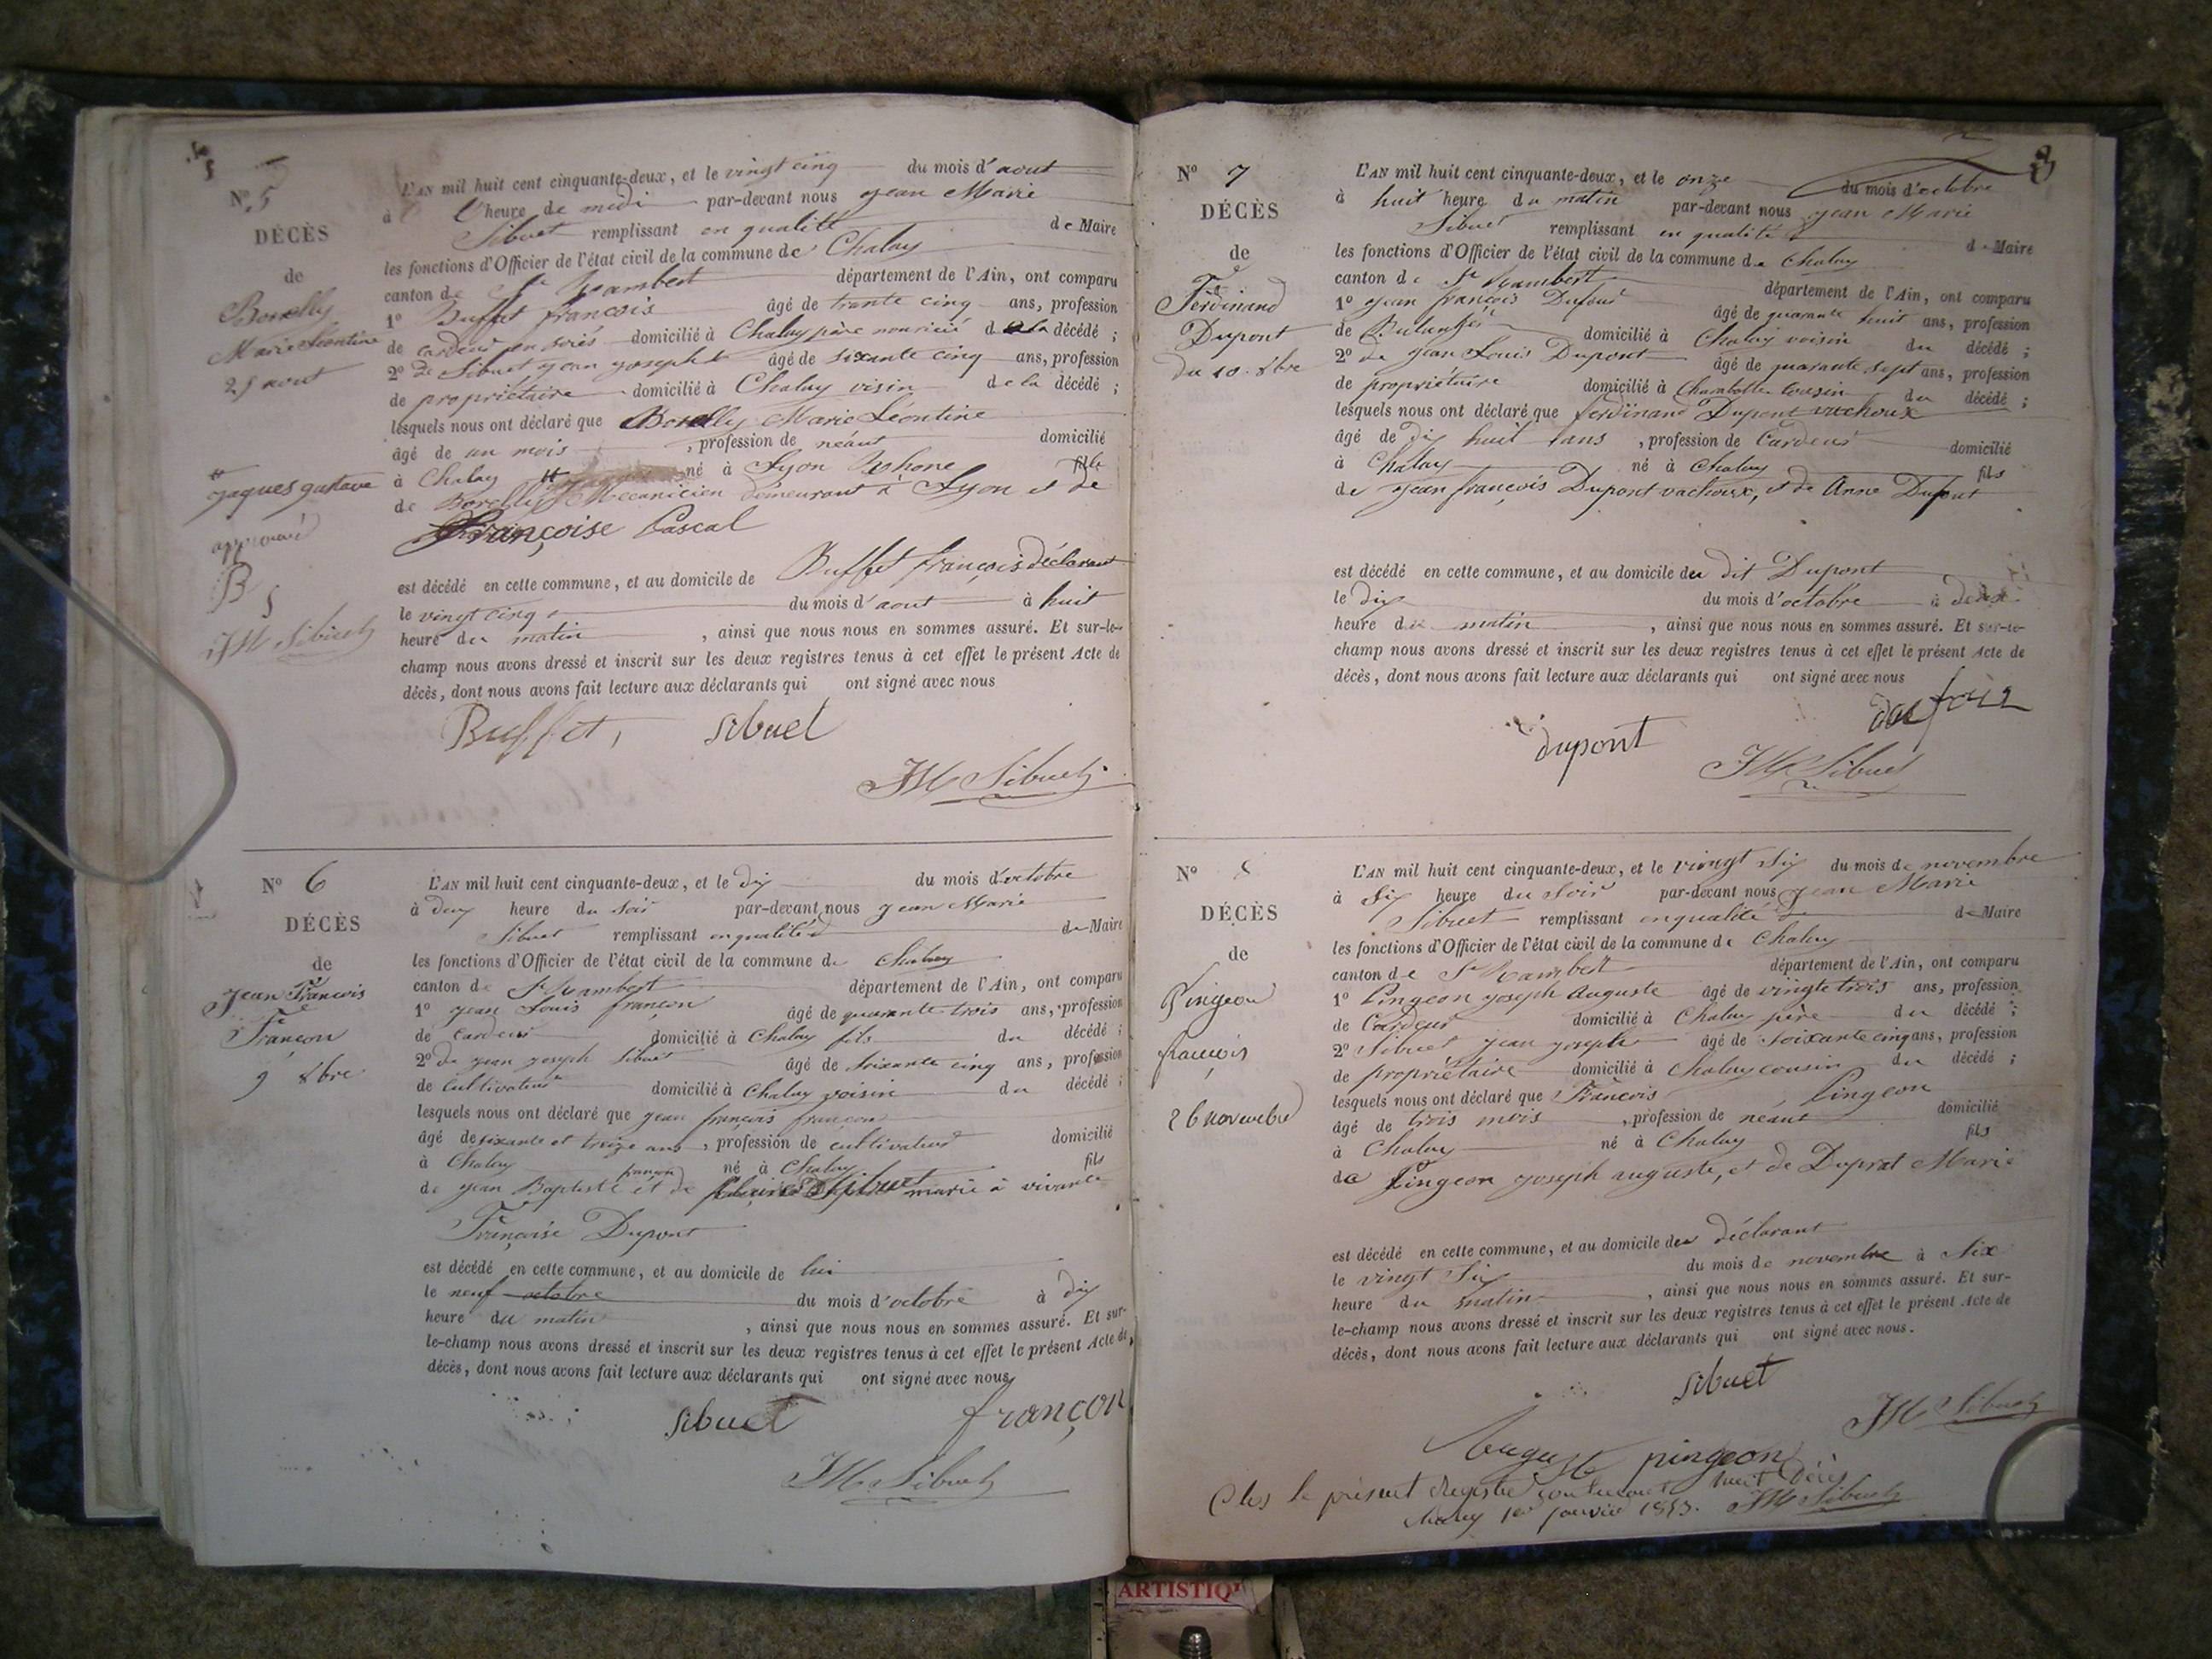 N° 5
DÉCÈS
de
Borelly
Marie Léontine
25 aout
L'AN mil huit cent cinquante-deux, et le vingt cinq du mois d'aout
à l'heure de midi par-devant nous jean Marie
Sibuet remplissant en qualité de Maire
les fonctions d'Officier de l'état civil de la commune de Chaley
canton de St Rambert département de l'Ain, ont comparu
1° Buffet françois âgé de trante cinq ans, profession
de cardeur en soies domicilié à Chaley père nouricié de la décédé ;
2° de Sibuet jean joseph âgé de sixante cinq ans, profession
de propriétaire domicilié à Chaley visin de la décédé ;
lesquels nous ont déclaré que Borelly Marie Léontine
âgé de un mois , profession de néant domicilié
à Chaley né à Lyon Rhone fille
de Borelly Mécanicien demeurant à Lyon et de
Françoise Pascal
jaques gustave
approuvé
B
JM Sibuet
est décédé en cette commune, et au domicile de Buffet françois déclarant
le vingt cinq du mois d'aout à huit
heure du matin , ainsi que nous nous en sommes assuré. Et sur-le-
champ nous avons dressé et inscrit sur les deux registres tenus à cet effet le présent Acte de
décès, dont nous avons fait lecture aux déclarants qui ont signé avec nous
Buffet, sibuet
JM Sibuet
N° 6
DÉCÈS
de
Jean François
Françon
9 8bre
L'AN mil huit cent cinquante-deux, et le dix du mois d'octobre
à deux heure du soir par-devant nous jean Marie
Sibuet remplissant en qualité de Maire
les fonctions d'Officier de l'état civil de la commune de Chaley
canton de St Rambert département de l'Ain, ont comparu
1° jean Louis françon âgé de quarante trois ans, profession
de cardeur domicilié à Chaley fils du décédé ;
2° de jean joseph Sibuet âgé de soixante cinq ans, profession
de cultivateur domicilié à Chaley voisin du décédé ;
lesquels nous ont déclaré que jean françois françon
âgé de sixante et treize ans , profession de cultivateur domicilié
à Chaley né à Chaley fils
de jean Baptiste françon et de Sibuet marié à vivante
Françoise Dupont
est décédé en cette commune, et au domicile de lui
le neuf octobre du mois d'octobre à dix
heure du matin , ainsi que nous nous en sommes assuré. Et sur-
le-champ nous avons dressé et inscrit sur les deux registres tenus à cet effet le présent Acte de
décès, dont nous avons fait lecture aux déclarants qui ont signé avec nous
sibuet françon
JM Sibuet
N° 7
DÉCÈS
de
Ferdinand
Dupont
du 10 8bre
L'AN mil huit cent cinquante-deux, et le onze du mois d'octobre
à huit heure du matin par-devant nous jean Marie
Sibuet remplissant en qualité de Maire
les fonctions d'Officier de l'état civil de la commune de Chaley
canton de St Rambert département de l'Ain, ont comparu
1° jean françois Dufour âgé de quarante huit ans, profession
de domicilié à Chaley voisin du décédé ;
2° de jean Louis Dupont âgé de quarante sept ans, profession
de propriétaire domicilié à Charabotte cousin du décédé ;
lesquels nous ont déclaré que ferdinand Dupont vachoux
âgé de dix huit ans , profession de Cardeur domicilié
à Chaley né à Chaley fils
de jean françois Dupont vachoux, et de Anne Dupont
est décédé en cette commune, et au domicile du dit Dupont
le dix du mois d'octobre à deux
heure du matin , ainsi que nous nous en sommes assuré. Et sur-le-
champ nous avons dressé et inscrit sur les deux registres tenus à cet effet le présent Acte de
décès, dont nous avons fait lecture aux déclarants qui ont signé avec nous
dupont
JM Sibuet
N° 8
DÉCÈS
de
Pingeon
françois
26 novembre
L'AN mil huit cent cinquante-deux, et le vingt six du mois de novembre
à six heure du soir par-devant nous jean Marie
Sibuet remplissant en qualité de Maire
les fonctions d'Officier de l'état civil de la commune de Chaley
canton de St Rambert département de l'Ain, ont comparu
1° Pingeon joseph Auguste âgé de vingte trois ans, profession
de Cardeur domicilié à Chaley père du décédé ;
2° Sibuet jean joseph âgé de soixante cinq ans, profession
de propriétaire domicilié à Chaley cousin du décédé ;
lesquels nous ont déclaré que François Pingeon
âgé de trois mois , profession de néant domicilié
à Chaley né à Chaley fils
de Pingeon joseph auguste, et de Duprat Marie
est décédé en cette commune, et au domicile du déclarant
le vingt six du mois de novembre à six
heure du matin , ainsi que nous nous en sommes assuré. Et sur-
le-champ nous avons dressé et inscrit sur les deux registres tenus à cet effet le présent Acte de
décès, dont nous avons fait lecture aux déclarants qui ont signé avec nous.
sibuet
JM Sibuet
Auguste pingeon
Clos le présent Registre contenant huit Décès
Chaley 1er janvier 1853. JM Sibuet
ARTISTIQ